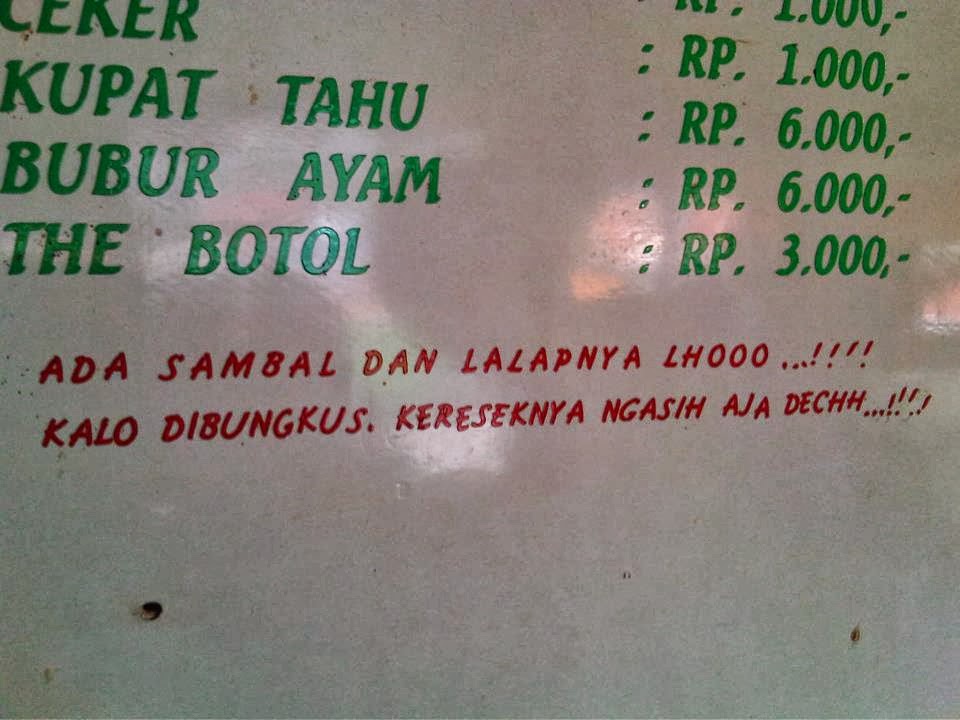 RP. 1.000,-
CEKER : RP. 1.000,-
KUPAT TAHU : RP. 6.000,-
BUBUR AYAM : RP. 6.000,-
THE BOTOL : RP. 3.000,-
ADA SAMBAL DAN LALAPNYA LHOOO...!!!!
KALO DIBUNGKUS. KERESEKNYA NGASIH AJA DECHH...!!!!